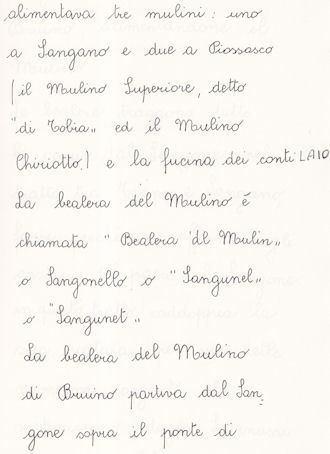 alimentava tre mulini: uno
a Sangano e due a Piossasco
(il Mulino Superiore, detto
"di Tobia„ ed il Mulino
Chiriotto) e la fucina dei conti LAIO
La bealera del Mulino è
chiamata "Bealera 'dl Moulin„
o Sangonello o "Sangunel„
o "Sangunet„
La bealera del Mulino
di Bruino partiva dal San-
gone sopra il ponte di